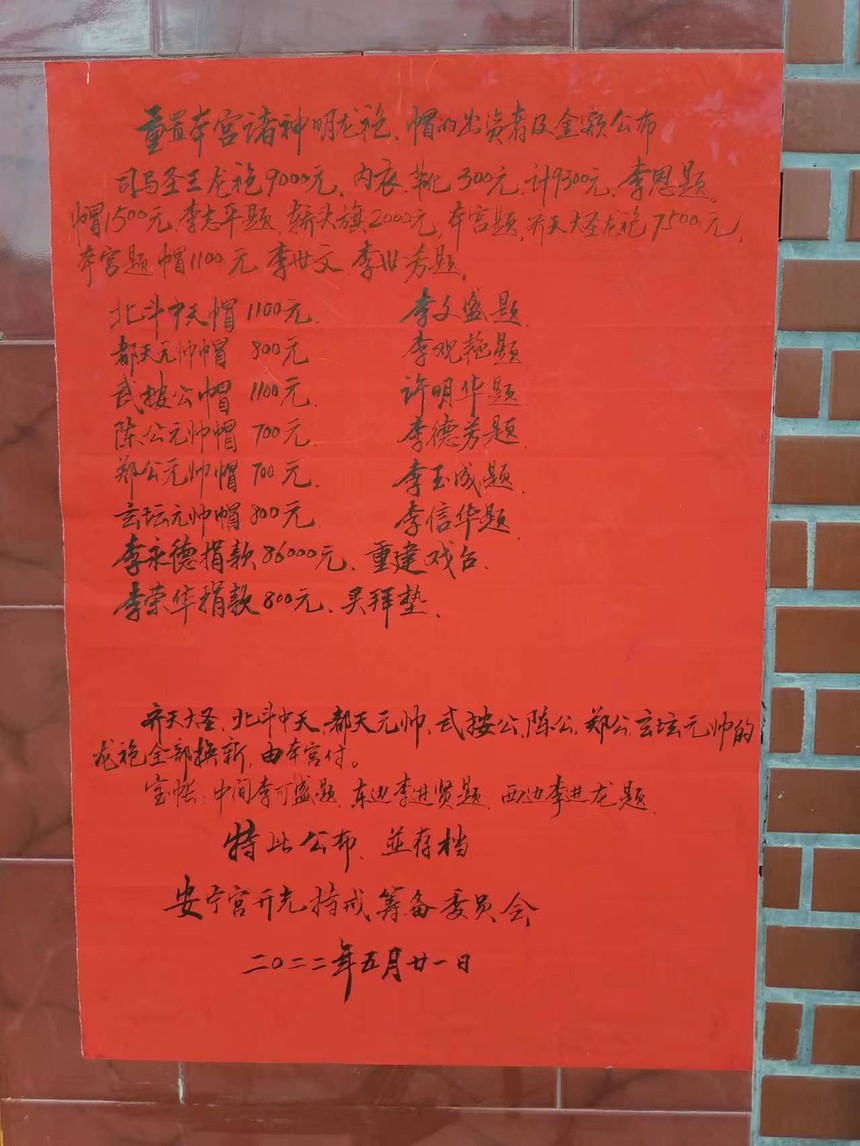 量置本宫诸神明龙袍、帽的出资者及金额公布
司马圣王龙袍9000元、内衣、靴300元、计9300元、李恩题。
帽1500元、李志平题、轿头旗2000元、本宫题、齐天大圣龙袍7500元、
本宫题帽1100元、李世文、李世芳题。
北斗中天帽1100元. 李文盛题.
都天元帅帽800元 李观艳题
武按公帽1100元. 许明华题
陈公元帅帽700元. 李德芳题.
郑公元帅帽700元. 李玉成题.
玄坛元帅帽800元. 李信华题
李永德捐款86000元、重建戏台.
李荣华捐款800元、买拜垫.
齐天大圣、北斗中天、都天元帅、武按公、陈公、郑公、玄坛元帅的
龙袍全部换新、由本宫付。
宝帐、中间李可盛题、东边李进贤题、西边李进龙题
特此公布、並存档
安宁宫开光持戒筹备委员会
二〇二二年五月廿一日